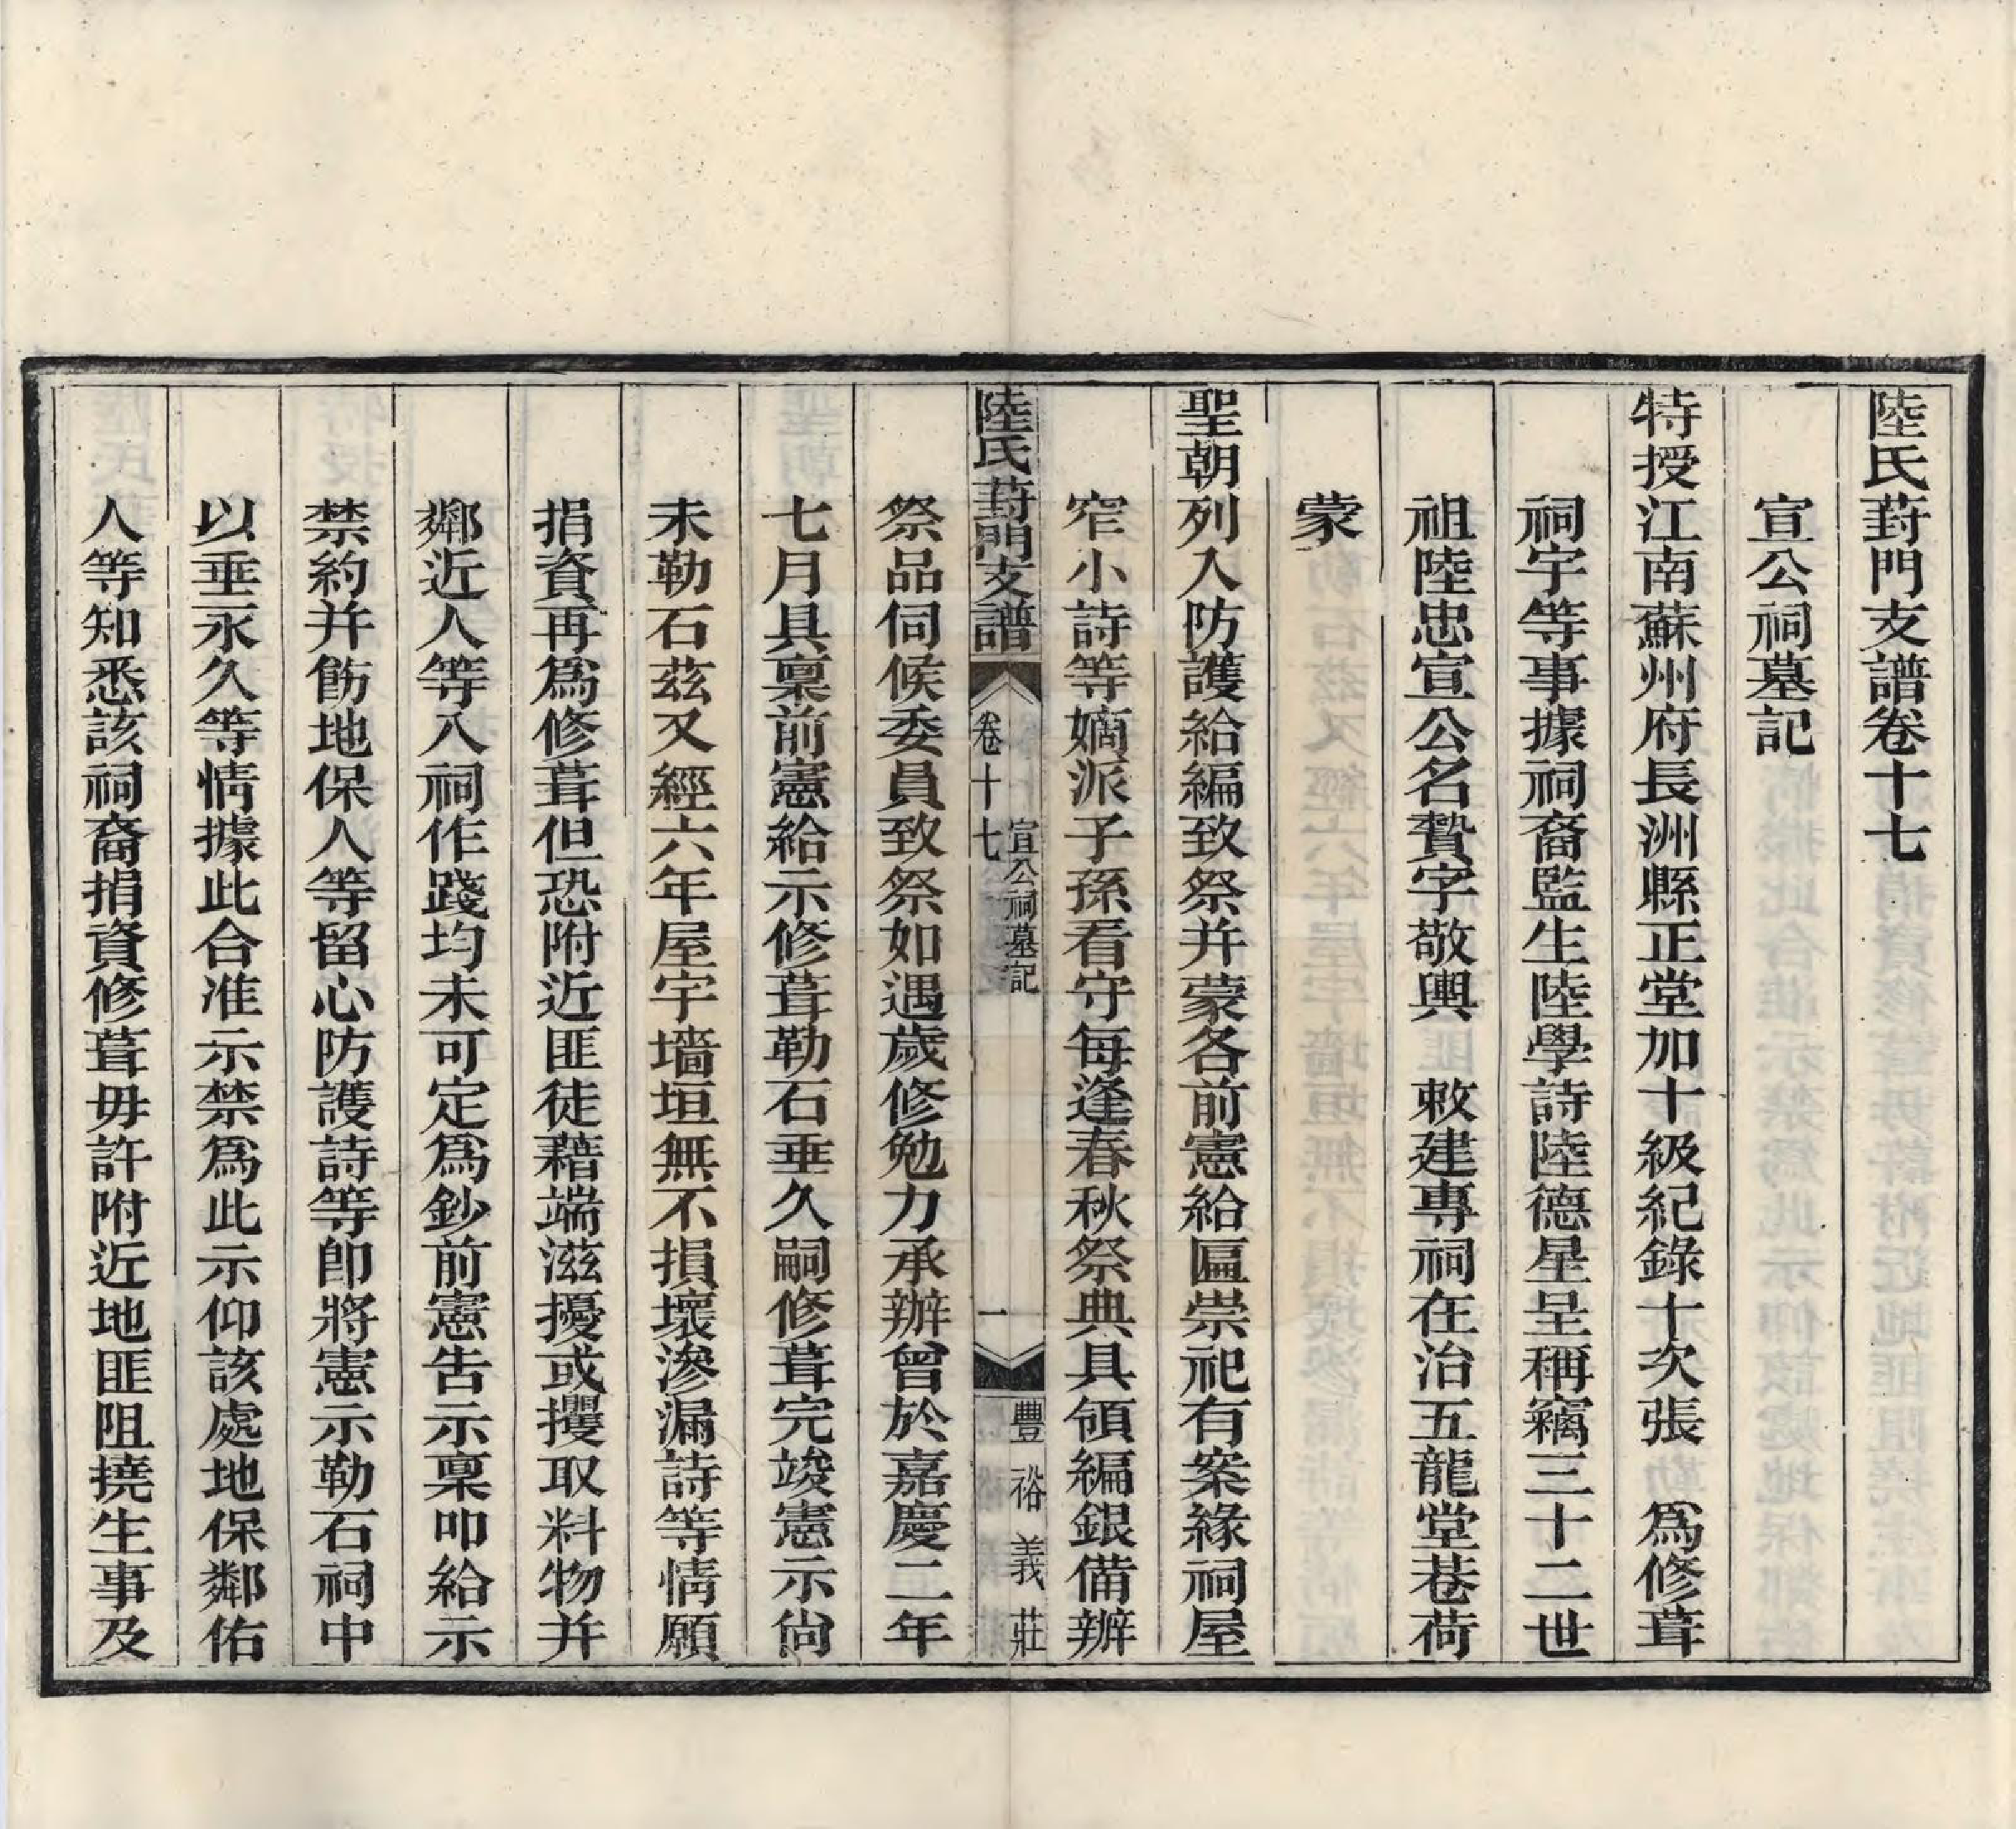 陸氏葑門支譜卷十七
宣公祠墓記
特授江南蘇州府長洲縣正堂加十級紀錄十次張　爲修葺
祠宇等事據祠裔監生陸學詩陸德星呈稱竊三十二世
祖陸忠宣公名贄字敬輿　敕建專祠在治五龍堂巷荷
蒙
聖朝列入防護給編致祭并蒙各前憲給匾崇祀有案緣祠屋
窄小詩等嫡派子孫看守每逢春秋祭典具領編銀備辦
陸氏葑門支譜　卷十七　宣公祠墓記　一　豐裕義莊
祭品伺候委員致祭如遇歲修勉力承辦曾於嘉慶二年
七月具稟前憲給示修葺勒石垂久嗣修葺完竣憲示尙
未勒石茲又經六年屋宇墻垣無不損壞滲漏詩等情願
捐資再爲修葺但恐附近匪徒藉端滋擾或攫取料物并
鄰近人等入祠作踐均未可定爲鈔前憲告示稟叩給示
禁約并飭地保人等留心防護詩等卽將憲示勒石祠中
以垂永久等情據此合准示禁爲此示仰該處地保鄰佑
人等知悉該祠裔捐資修葺毋許附近地匪阻撓生事及